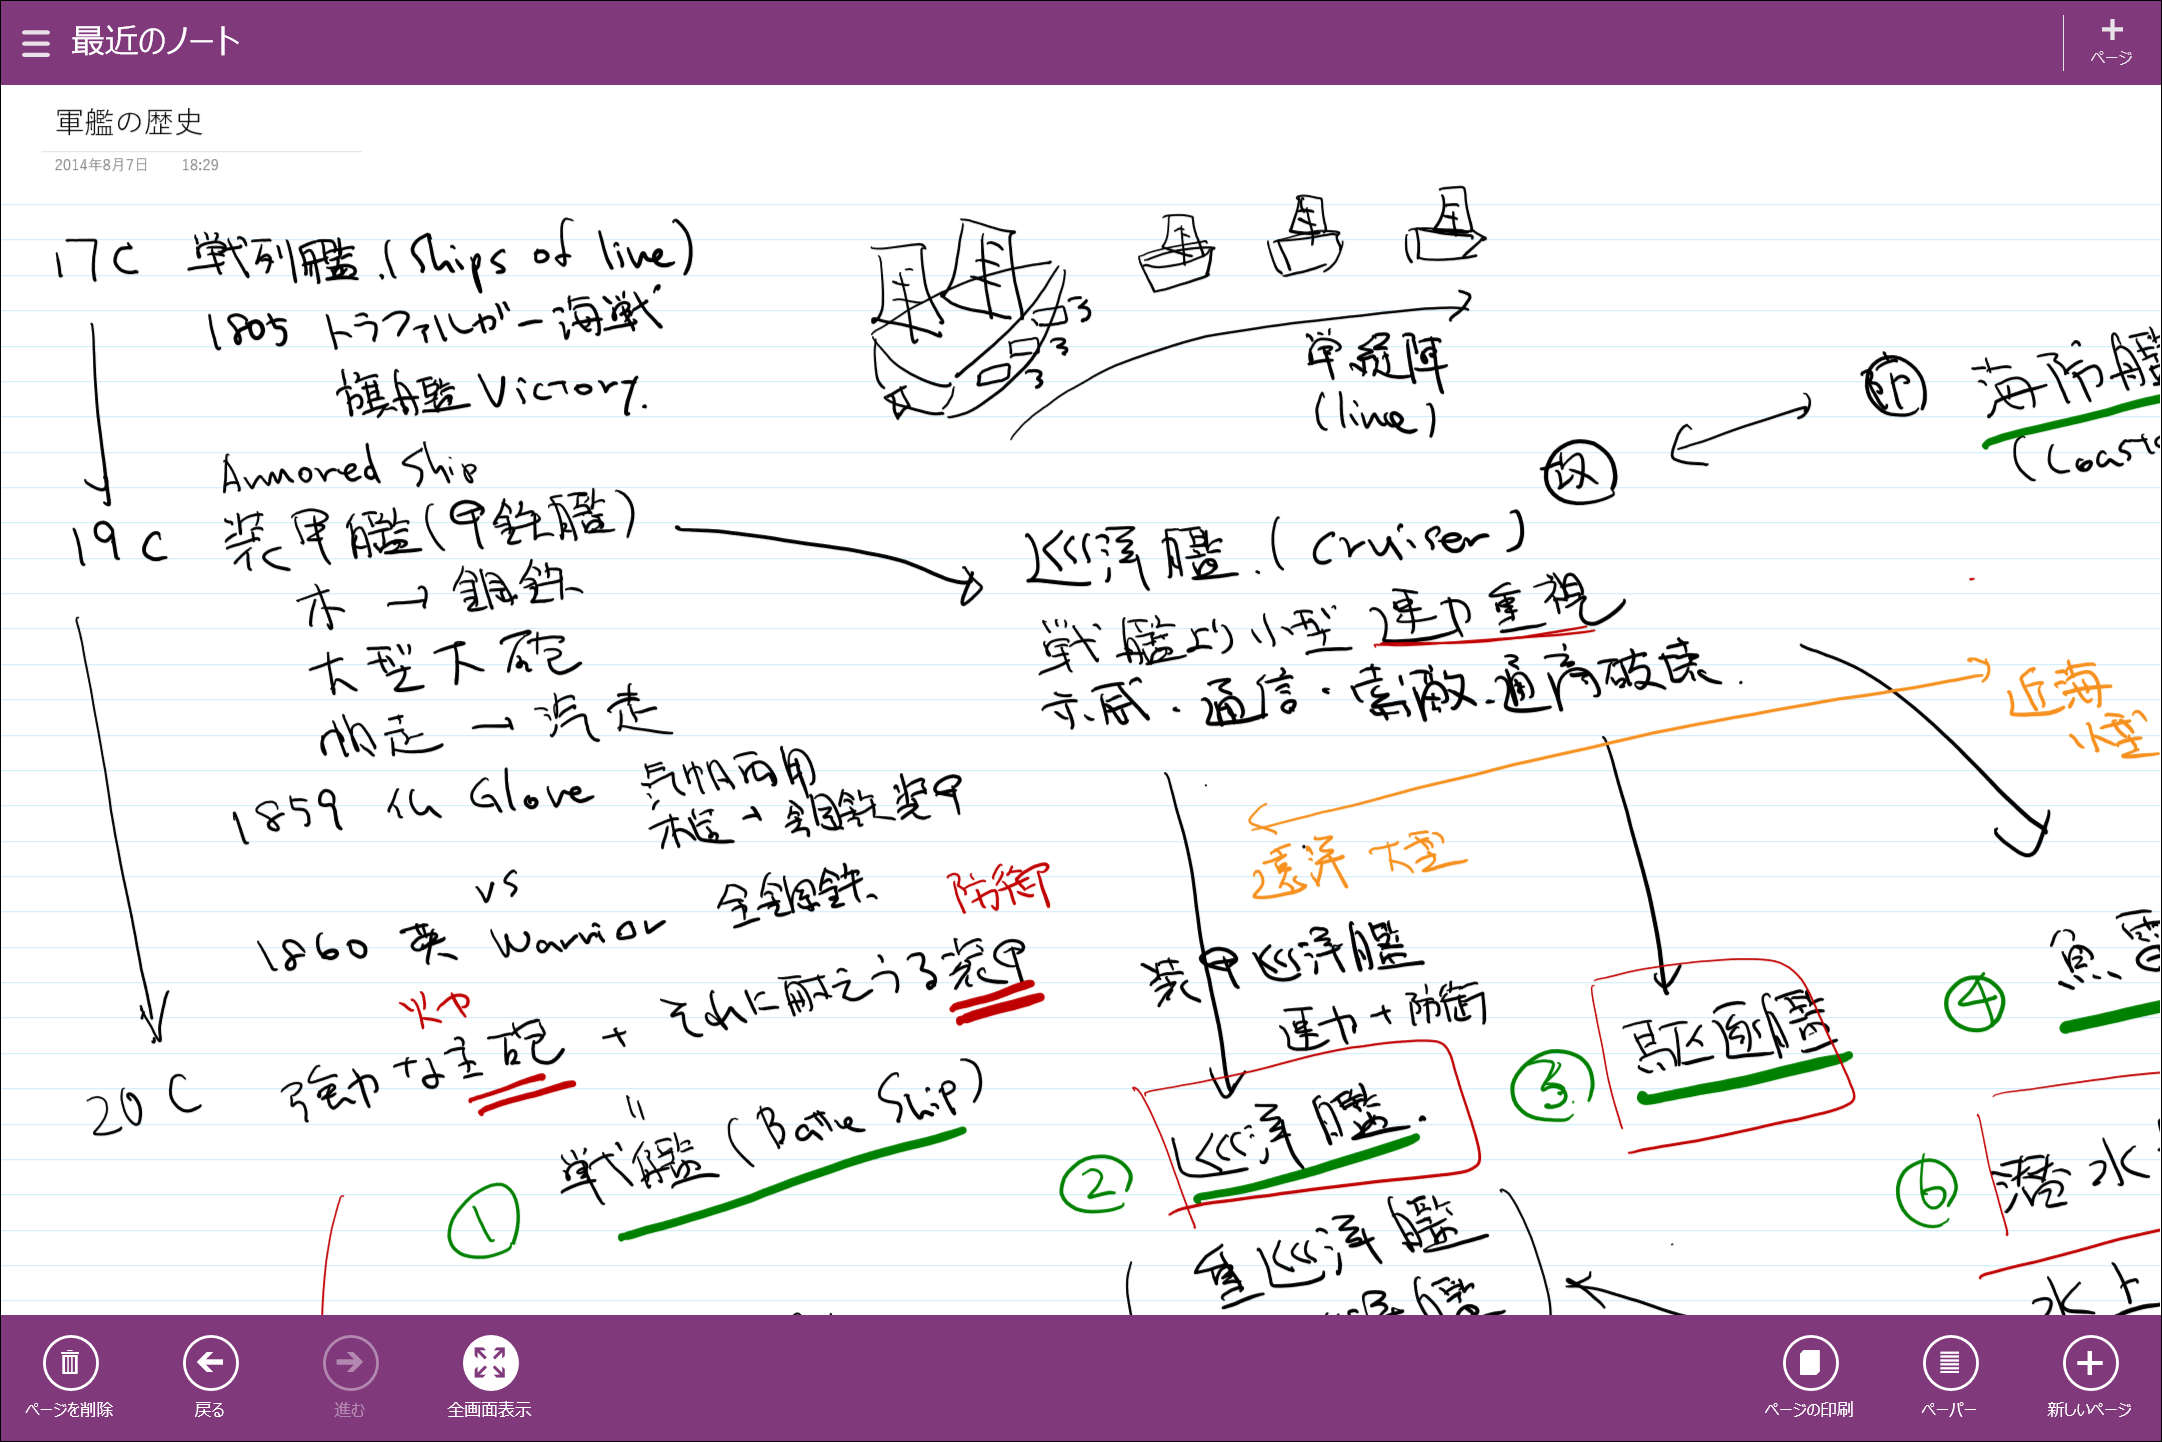 最近のノート
ページ
軍艦の歴史
2014年8月7日 18:29
17C 戦列艦.(Ships of line)
1805 トラファルガー海戦
旗艦 Victory.
単縦陣
(line)
防
海防艦
(Coast
攻
Armored Ship
19C 装甲艦(甲鉄艦)
木→鋼鉄
大型大砲
帆走→汽走
1859 仏 Glove 汽帆両用
木造→鋼鉄装甲
vs
1860 英 Warrior 全鋼鉄
防御
火力
強力な主砲 + それに耐えうる装甲
20C
"
戦艦 (Battle Ship)
①
巡洋艦.(Cruiser)
戦艦より小型 速力重視
示威・通信・索敵・通商破壊.
近海
小型
遠洋 大型
装甲巡洋艦
速力+防御
② 巡洋艦.
重巡洋艦
③ 駆逐艦
④ 魚雷
⑥ 潜水
水上
ページを削除
戻る
進む
全画面表示
ページの印刷
ペーパー
新しいページ